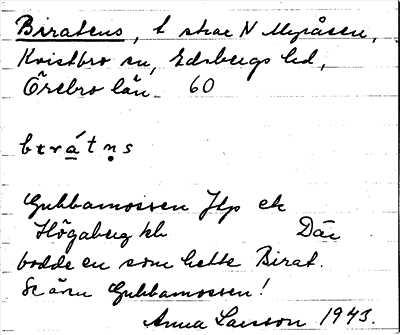 Biratens, t strae N Myråsen,
Kvistbro sn, Edsbergs hd,
Örebro län 60
bɩrátn̥s
Gubbamossen Jlp ek
Högaberg kb Där
bodde en som hette Birat.
Se även Gubbamossen!
Anna Larsson 1943.